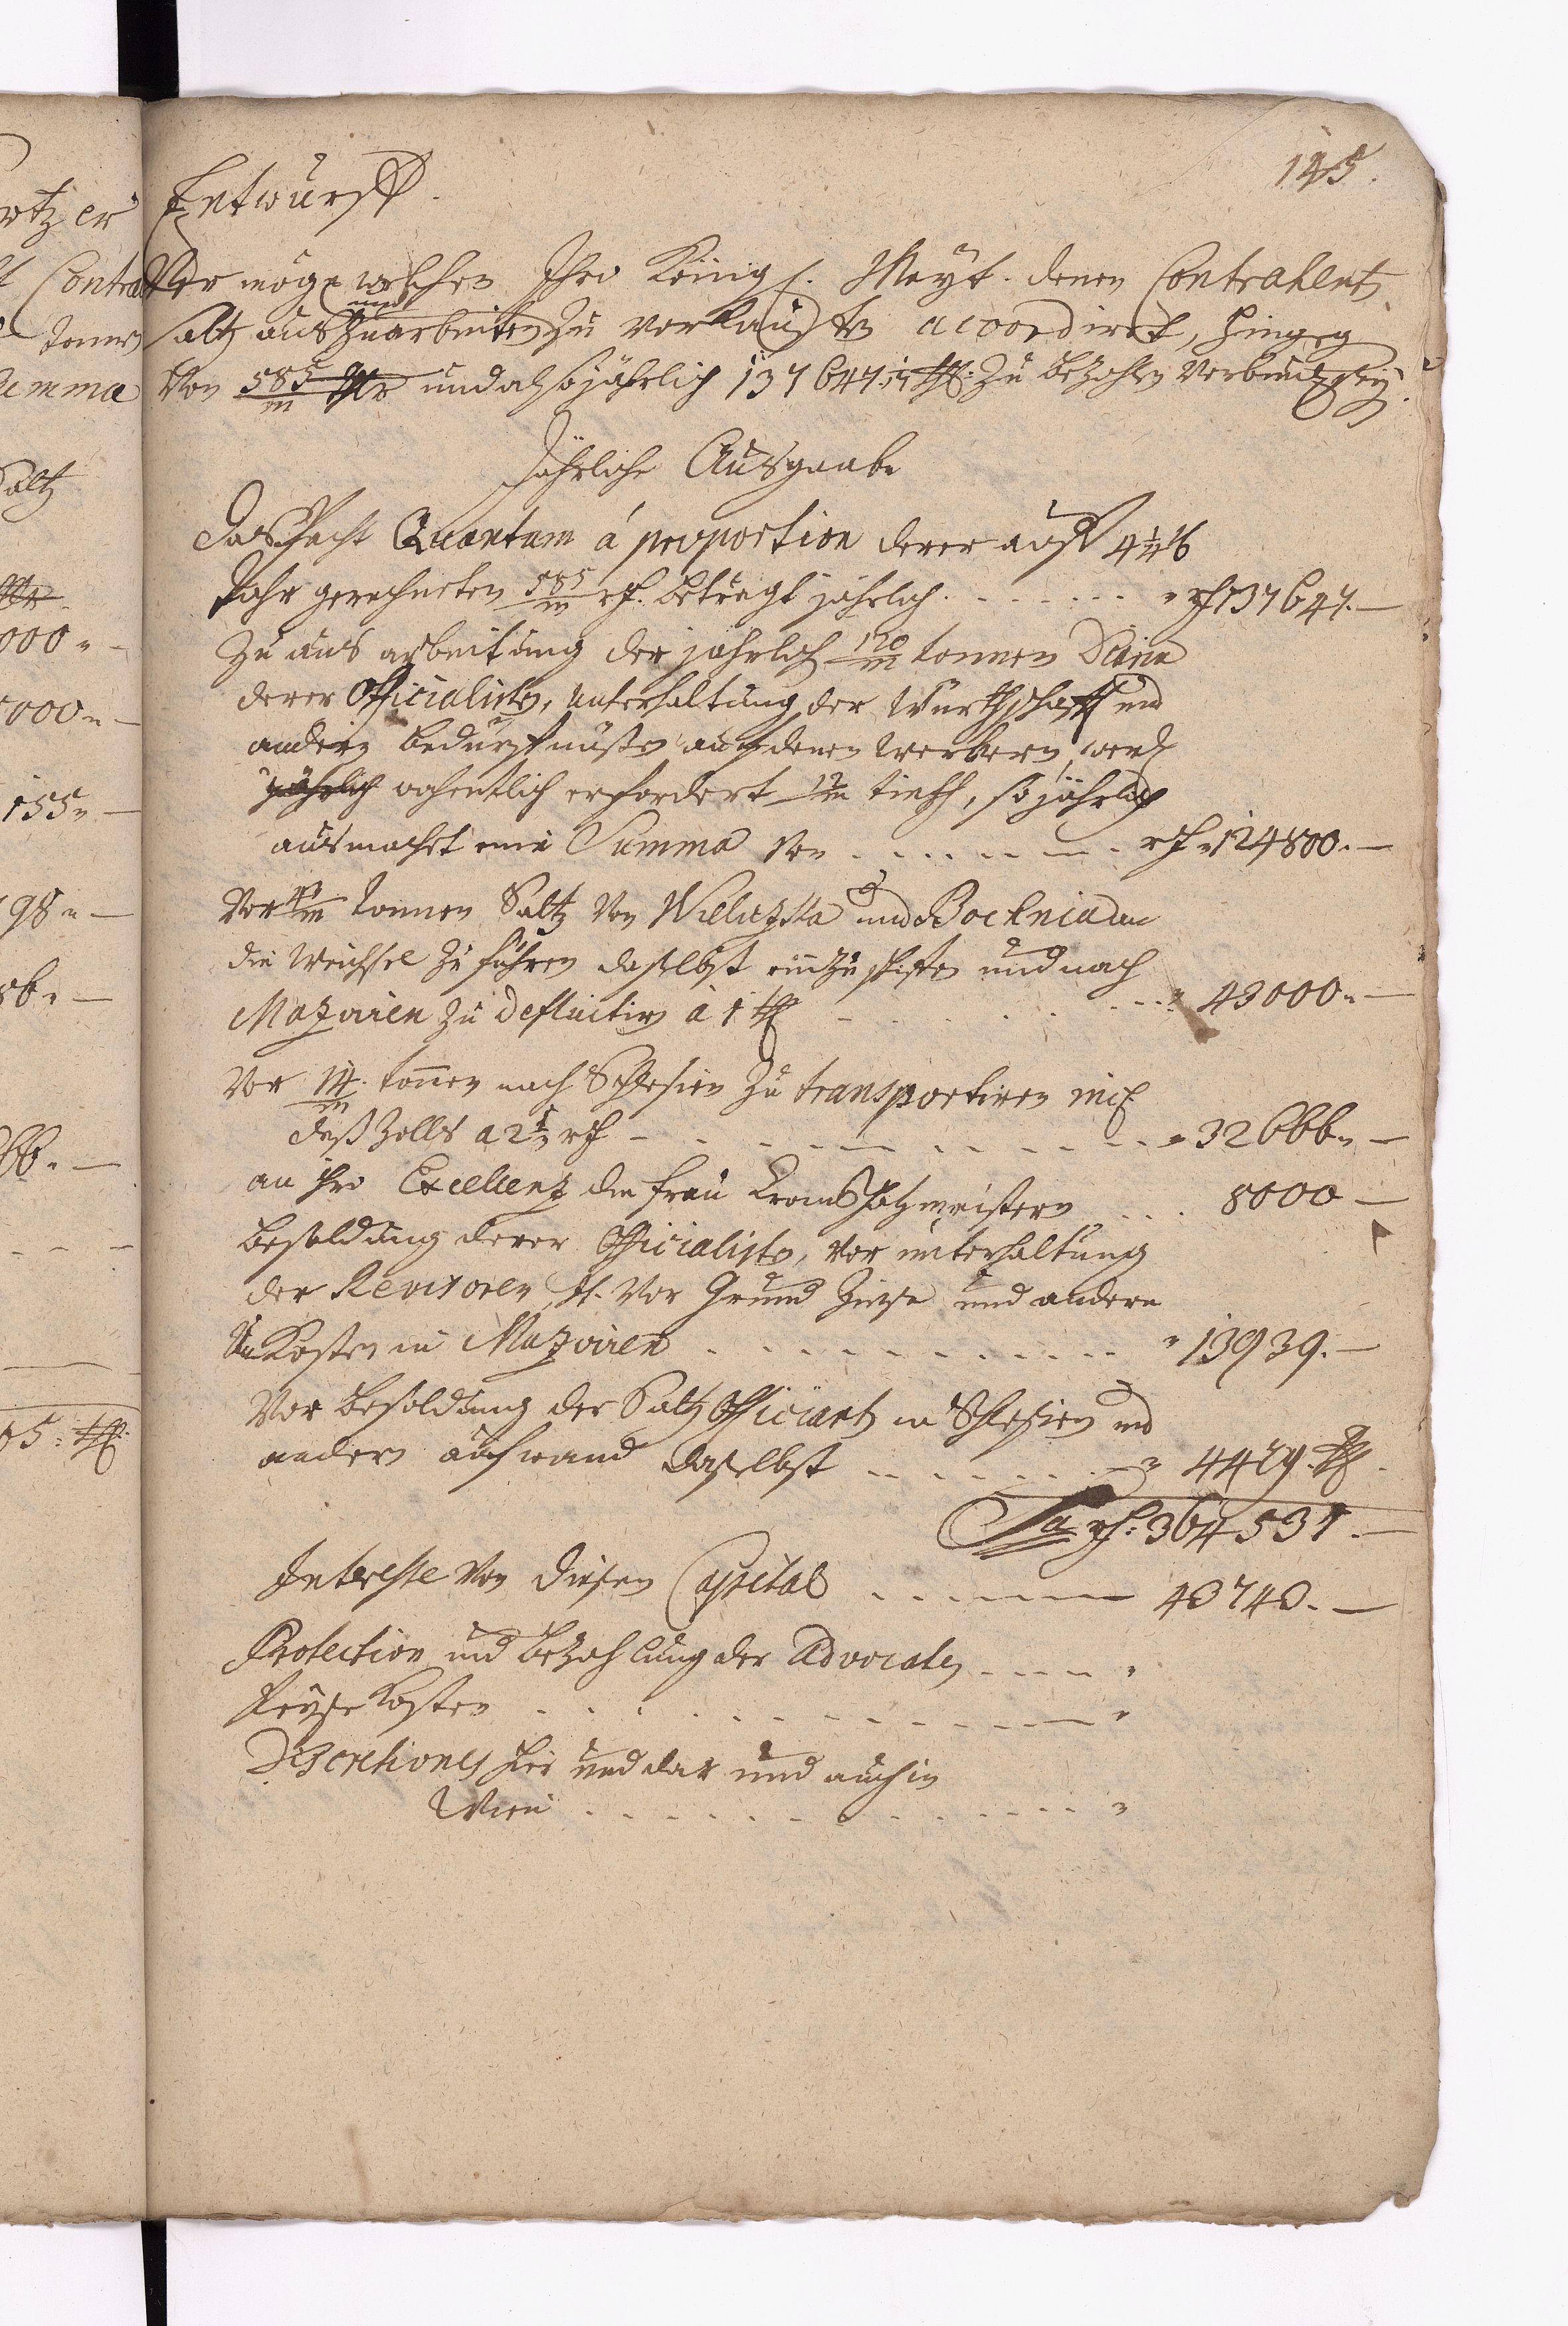 145.
Entwurff.
Ver möge welcher Ihro Königl. Mayt. denen Contrahentz
saltz aus Zuarbeiten und zu verkauffen accordiret, hingeg
von 585/m und also jährlich 137647 zu bezahlen verbundig
Jährliche Ausgaabe
Das Pacht Quantum á proportion derer auff 4 1/4
Jahr gerechneten 585/m rf. beträgt jährlich " rf 137647.—
Zu aus arbeitung der jährlich 120/m tonnen
derer Officialisten, unterhaltung der Würthschafft und
andern bedürfnüßen auf denen
jährlich wochentlich erfordert 12/m tieff, so jährlich
ausmachet eine Summa von rf " 124800.—
Vor 43/m tonnen Saltz von Wieliczka und Bochnia an
die Weichsel zu führen daselbst einzuschiffen und nach
Mazovien zu defluitiren à 1 " 43000.—
Vor 14/m tonnen nach Schlesien zu transportiren incl
deß Zolls a 2 1/3 rf " 32666.—
an Ihro Excellenz die Frau Cron Schatzmeistern 8000 —
Besoldung derer Officialisten, vor unterhaltung
der Revisoren, vor Grund Zinse und andere
UnKosten in Mazovien " 13939.—
Vor Besoldung der Saltz Officianten in Schlesien und
andern aufwand daselbst " 4479.
Sa rf: 364531.—
Interesse von diesen Capital 40740.—
Protection und bezahlung der Advocaten "
Reyse Kosten "
Discretiones hier und dar und auch in
Wien "